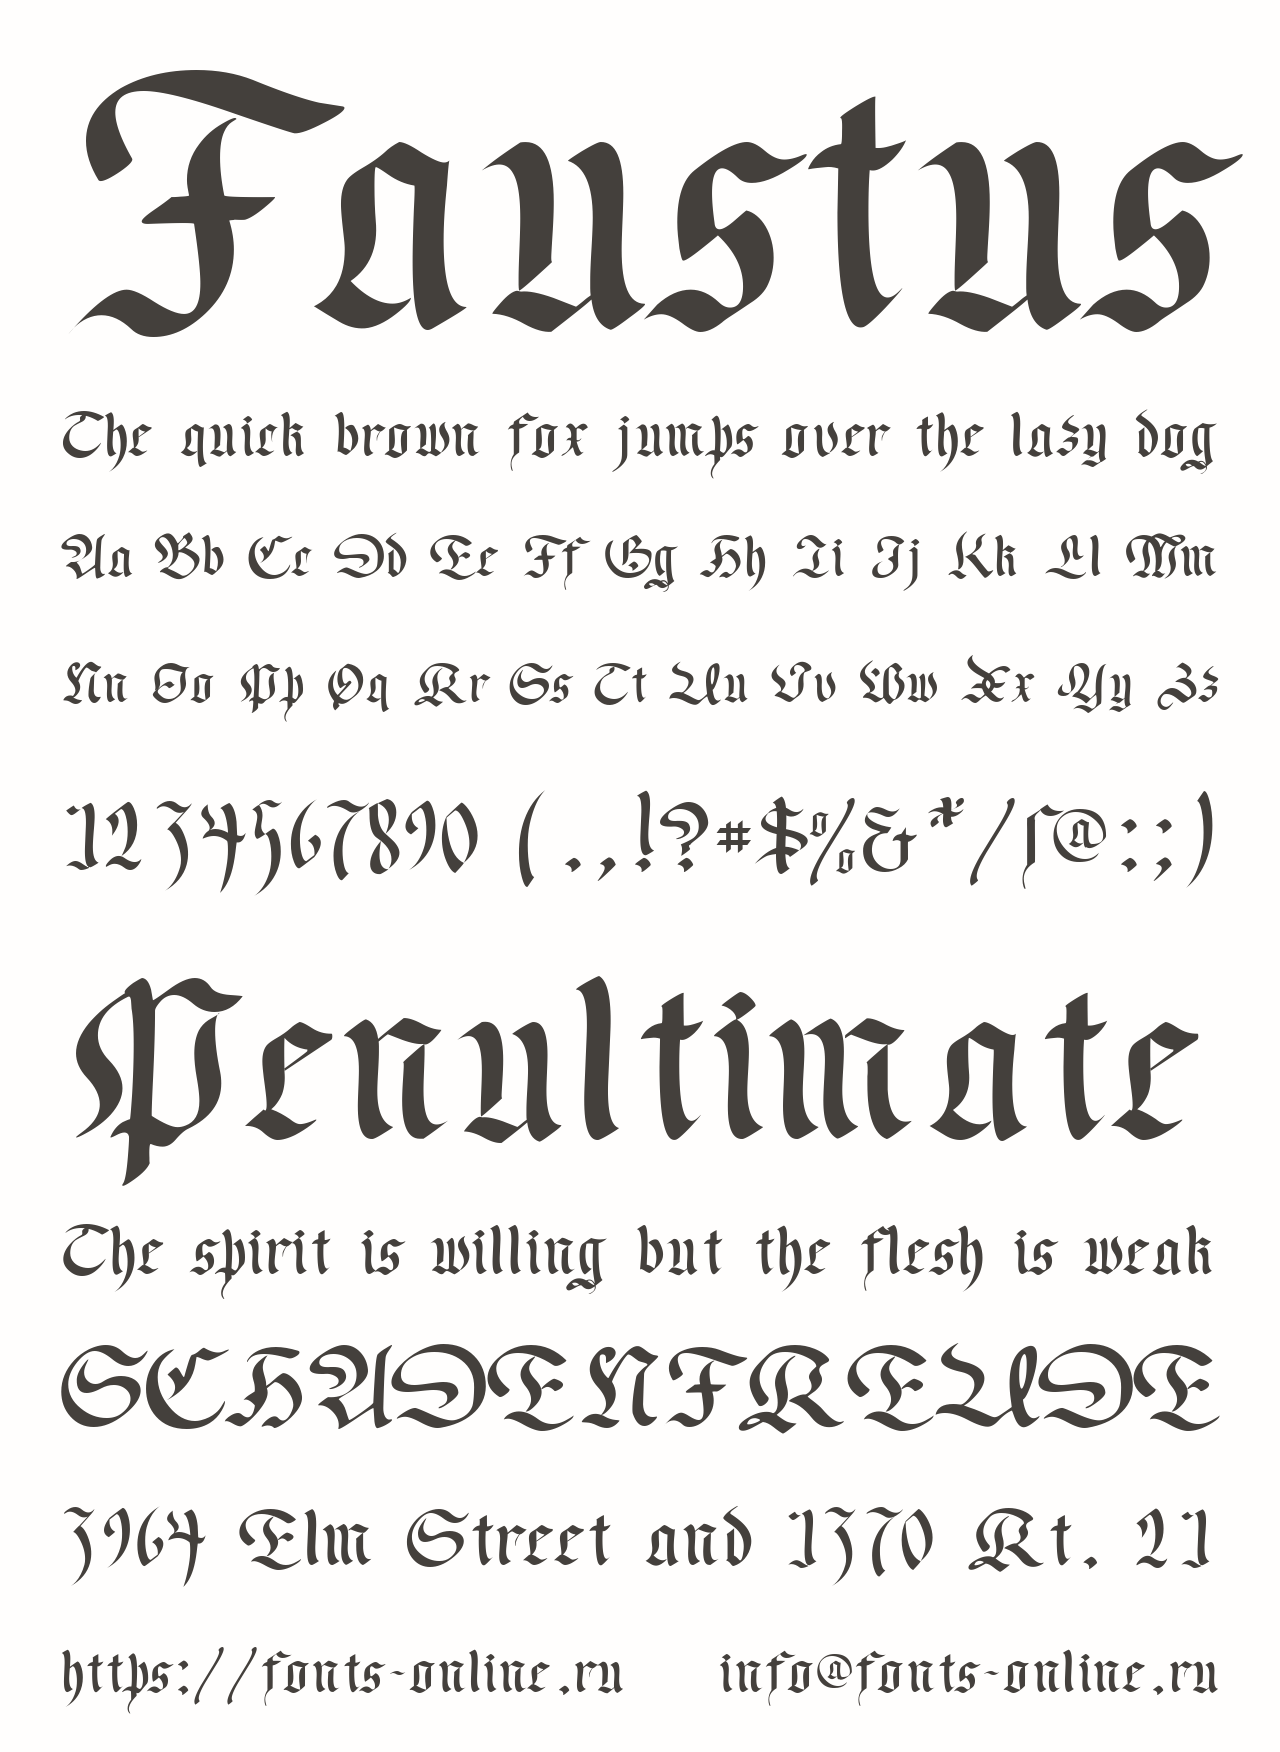 Faustus
The quick brown fox jumps over the lazy dog
Aa Bb Cc Dd Ee Ff Gg Hh Ii Jj Kk Ll Mm
Nn Oo Pp Qq Rr Ss Tt Uu Vv Ww Xx Yy Zz
1234567890 (.,!?#$%&*/ſ@:;)
Penultimate
The spirit is willing but the flesh is weak
SCHADENFREUDE
3964 Elm Street and 1370 Rt. 21
https://fonts-online.ru info@fonts-online.ru